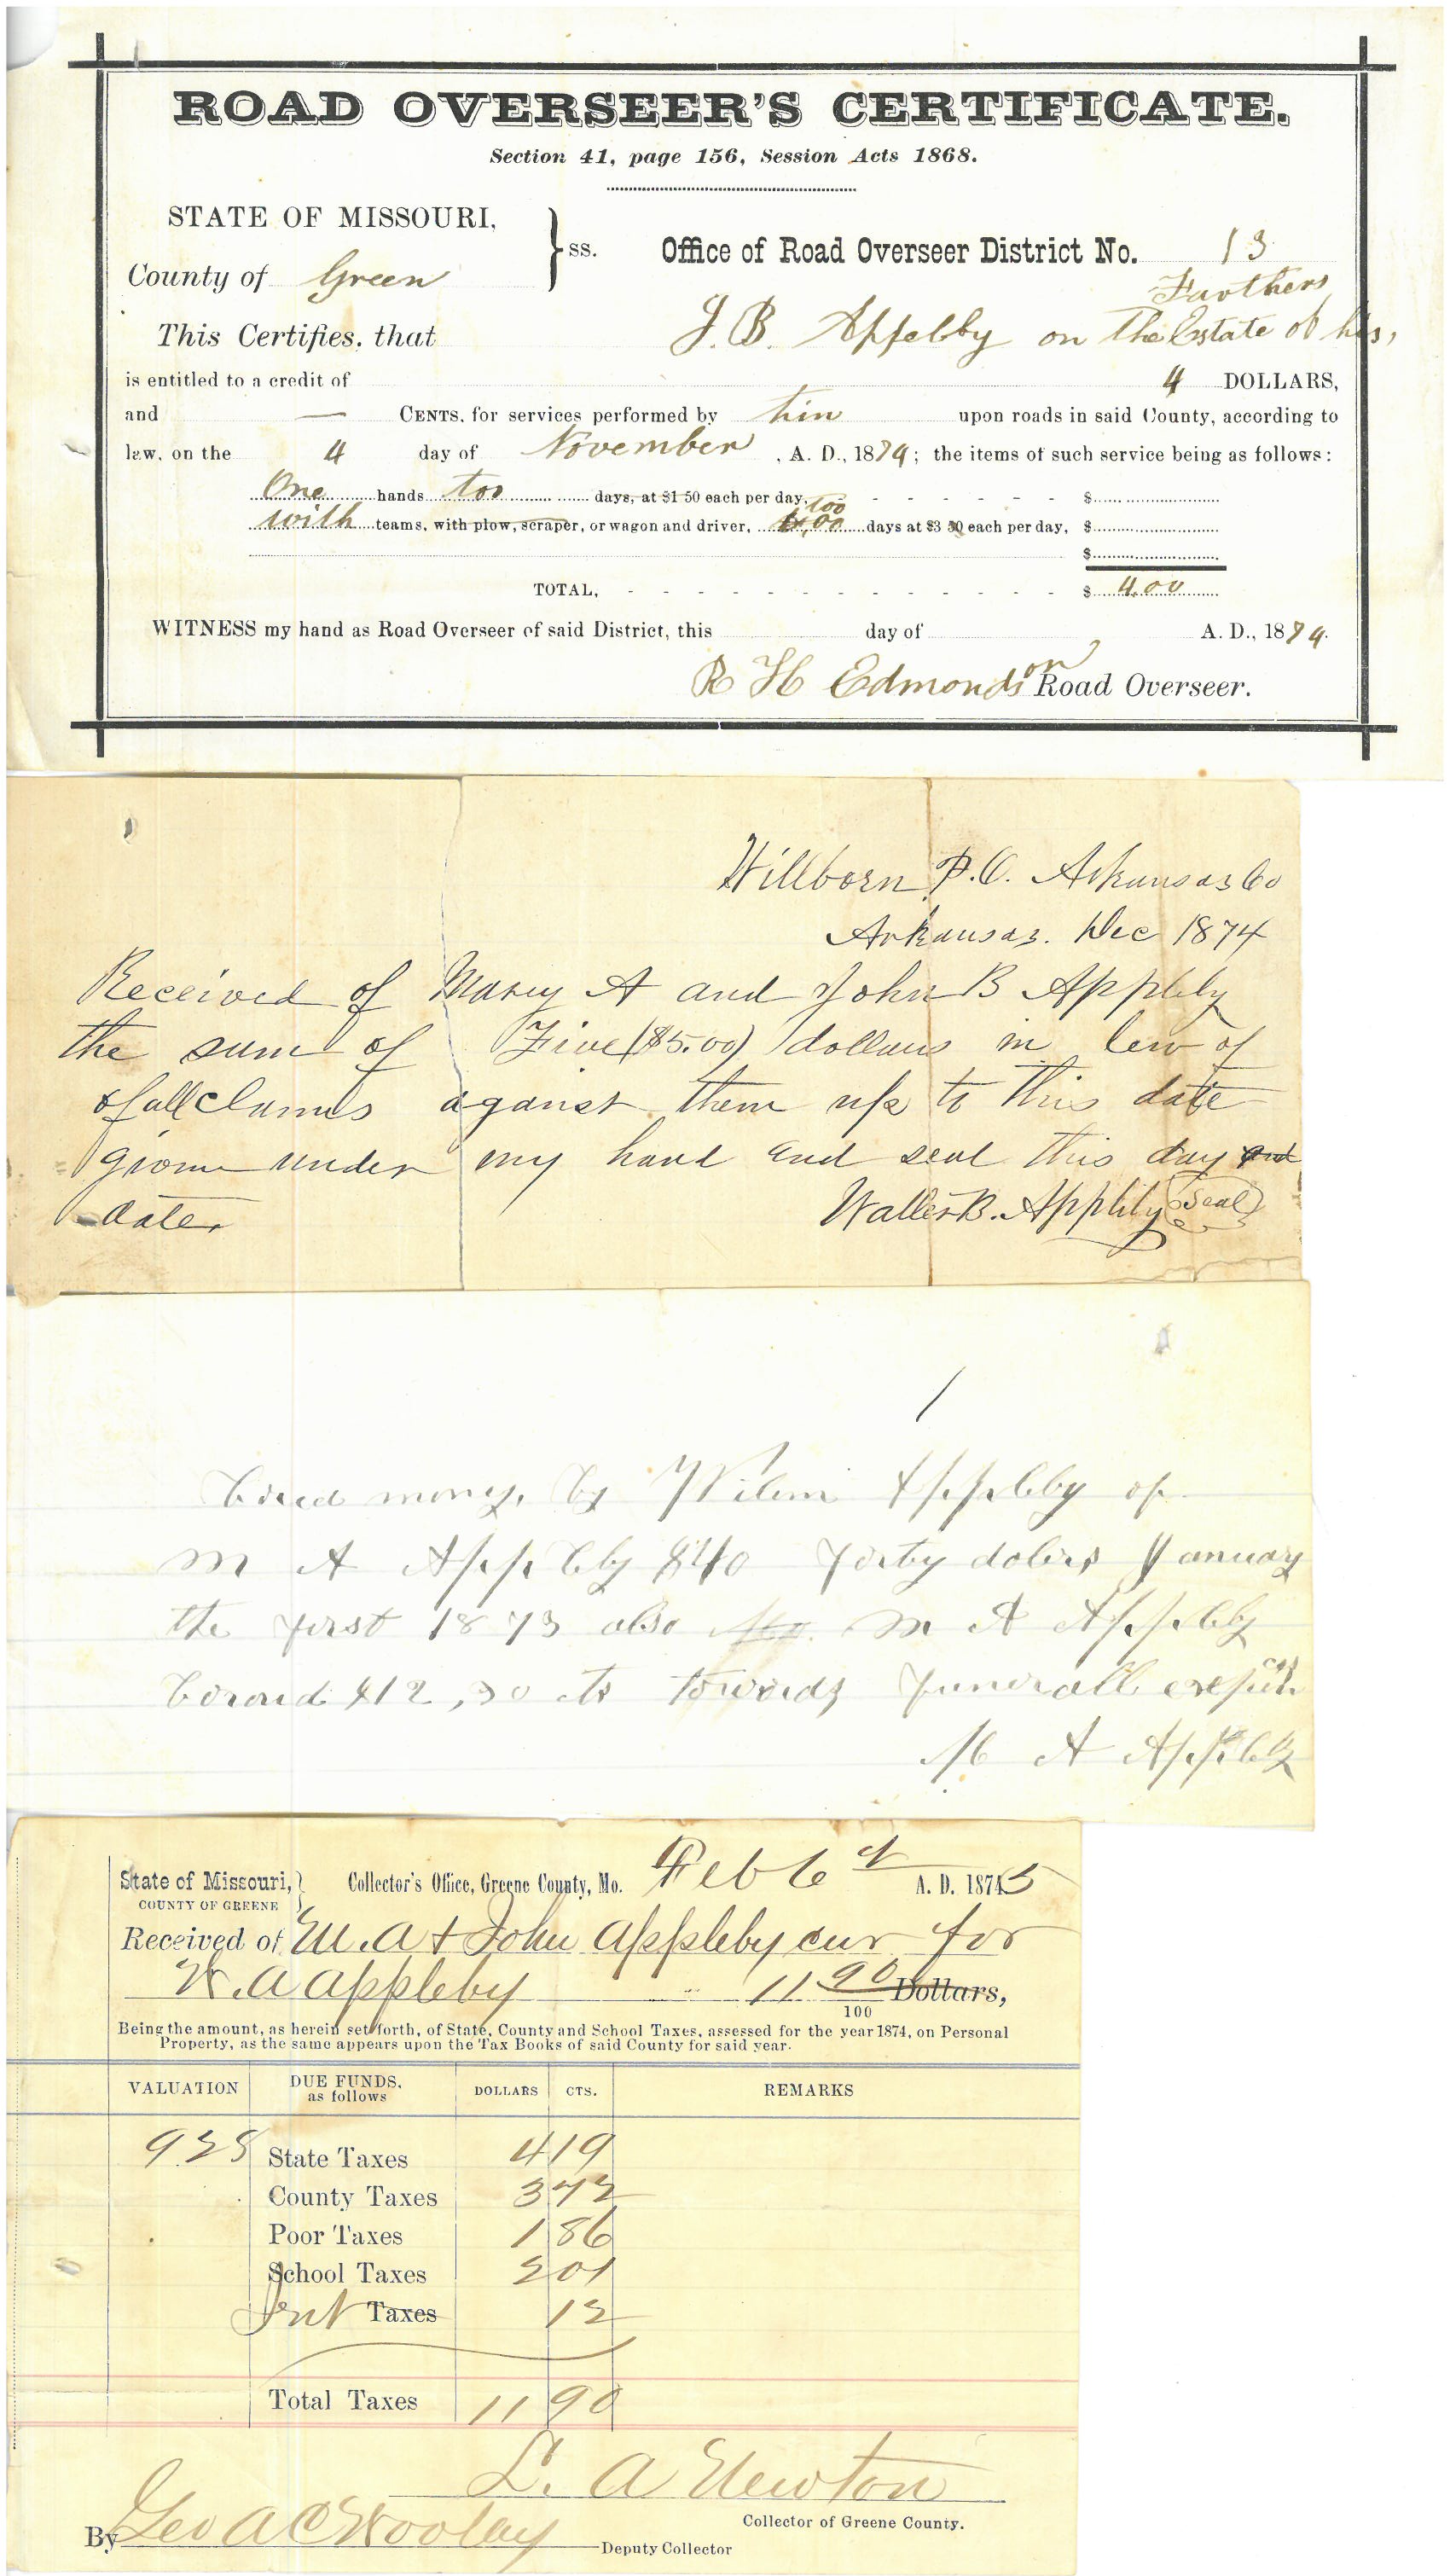 ROAD OVERSEER'S CERTIFICATE.
Section 41, page 156, Session Acts 1868.
STATE OF MISSOURI,
County of Green
} ss.
Office of Road Overseer District No. 13
Farthers
This Certifies, that J. B. Appelby on the Estate of his,
is entitled to a credit of 4 DOLLARS,
and — CENTS, for services performed by him upon roads in said County, according to
law, on the 4 day of November, A. D., 1874; the items of such service being as follows:
One hands too days, at $1 50 each per day, - - - - - - $
too
with teams, with plow, scraper, or wagon and driver, days at $3 50 each per day, $
$
TOTAL, - - - - - - - - - - - - - $ 4.00
WITNESS my hand as Road Overseer of said District, this day of A. D., 1874.
R H Edmondson Road Overseer.
Willborn P.O. Arkansas Co
Arkansas. Dec 1874
Received of Mary A and John B Appleby
the sum of Five ($5.00) dollars in lew of
of all claims against them up to this date
given under my hand and seal this day and
date,
Walter B. Appleby (Seal)
/
money, by Appleby of
M A Appleby $40 forty dolers January
the first 1873 also M A Appleby
$12,30 cts towards funerall
M A Appleby
State of Missouri,
COUNTY OF GREENE
} Collector's Office, Greene County, Mo. Feb 6th A. D. 1875
Received of M. A + John Appleby cur for
W. A Appleby 11 90/100 Dollars,
Being the amount, as herein set forth, of State, County and School Taxes, assessed for the year 1874, on Personal
Property, as the same appears upon the Tax Books of said County for said year.
VALUATION DUE FUNDS, as follows DOLLARS CTS. REMARKS
928 State Taxes 4 19
County Taxes 3 72
Poor Taxes 1 86
School Taxes 2 01
Int Taxes 12
Total Taxes 11 90
L. A Newton
Collector of Greene County.
By Geo A C Wooley Deputy Collector